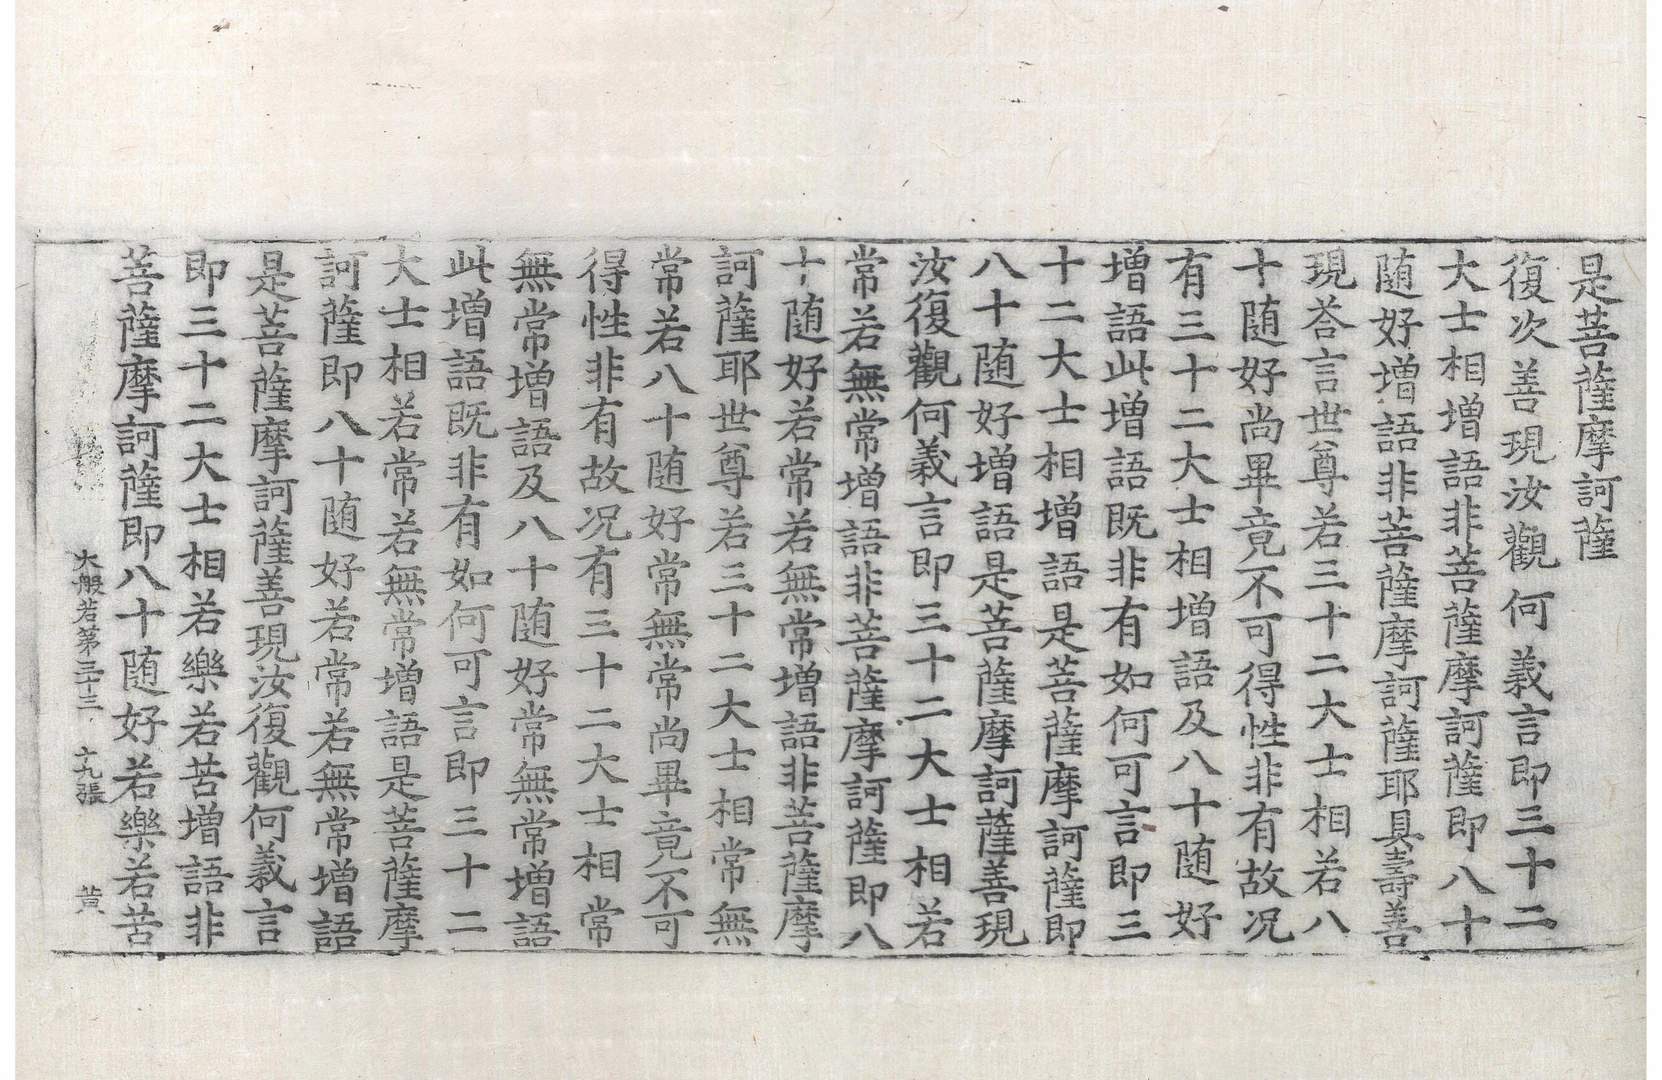 是菩薩摩訶薩
復次善現汝觀何義言即三十二
大士相增語非菩薩摩訶薩即八十
随好增語非菩薩摩訶薩耶具壽善
現荅言世尊若三十二大士相若八
十随好尚畢竟不可得性非有故况
有三十二大士相增語及八十随好
增語此增語既非有如何可言即三
十二大士相增語是菩薩摩訶薩即
八十随好增語是菩薩摩訶薩善現
汝復觀何義言即三十二大士相若
常若無常增語非菩薩摩訶薩即八
十随好若常若無常增語非菩薩摩
訶薩耶世尊若三十二大士相常無
常若八十随好常無常尚畢竟不可
得性非有故况有三十二大士相常
無常增語及八十随好常無常增語
此增語既非有如何可言即三十二
大士相若常若無常增語是菩薩摩
訶薩即八十随好若常若無常增語
是菩薩摩訶薩善現汝復觀何義言
即三十二大士相若樂若苦增語非
菩薩摩訶薩即八十随好若樂若苦
大般若第三十三 十九張 黄